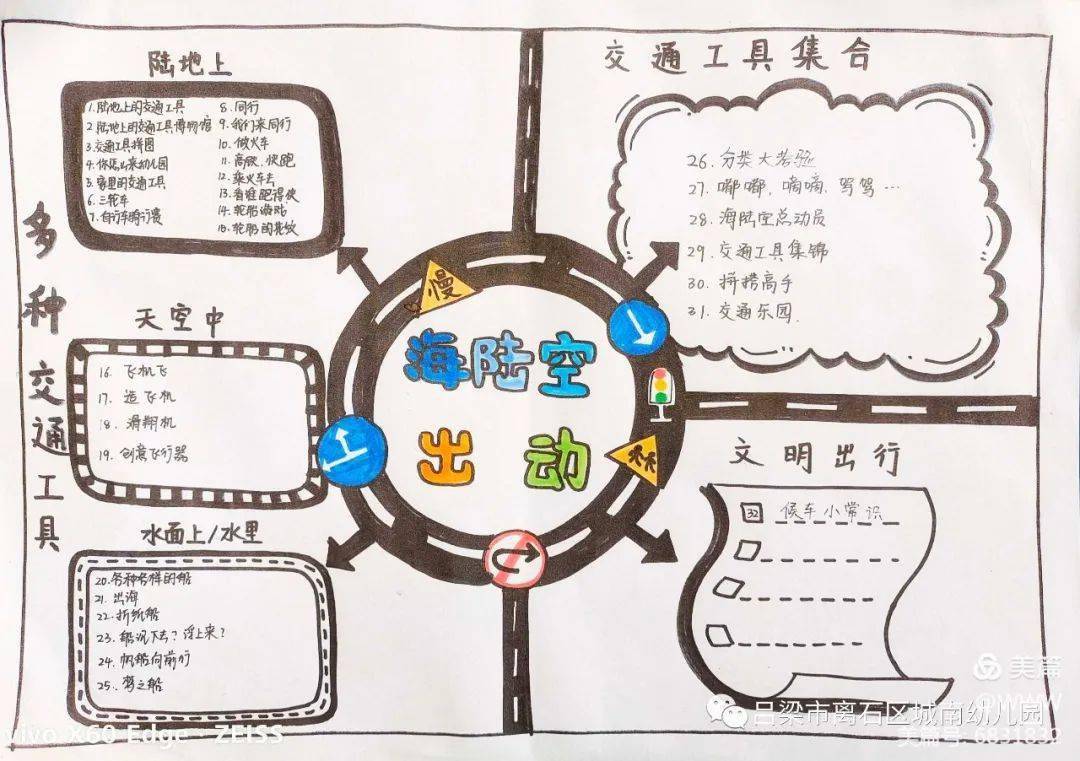 多种交通工具
陆地上
1. 陆地上的交通工具
2 陆地上的交通工具博物馆
3 交通工具拼图
4. 你怎么来幼儿园
5. 家里的交通工具
6. 三轮车
7. 自行车骑行赛
8. 同行
9. 我们来同行
10. 做火车
11. 高铁、快跑
12. 乘火车去
13. 看谁跑得快
14. 轮胎游戏
15. 轮胎的花纹
天空中
16. 飞机飞
17. 造飞机
18. 滑翔机
19. 创意飞行器
水面上/水里
20. 各种各样的船
21. 出海
22. 折纸船
23. 船沉下去？浮上来？
24. 帆船向前行
25. 梦之船
慢
海陆空
出动
交通工具集合
26. 分类大考验
27. 嘟嘟，嘀嘀，驾驾…
28. 海陆空总动员
29. 交通工具集锦
30. 拼搭高手
31. 交通乐园
文明出行
32 候车小常识
美篇
吕梁市离石区城南幼儿园
vivo X60 Edge · ZEISS
美篇号: 6831839